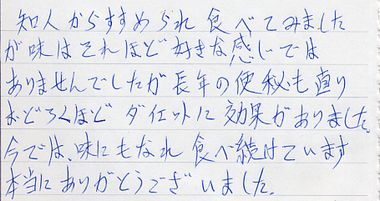 知人からすすめられ食べてみました
が味はそれほど好きな感じでは
ありませんでしたが長年の便秘も直り
おどろくほど ダイエットに効果がありました。
今では、味にもなれ食べ続けています
本当にありがとうございました。